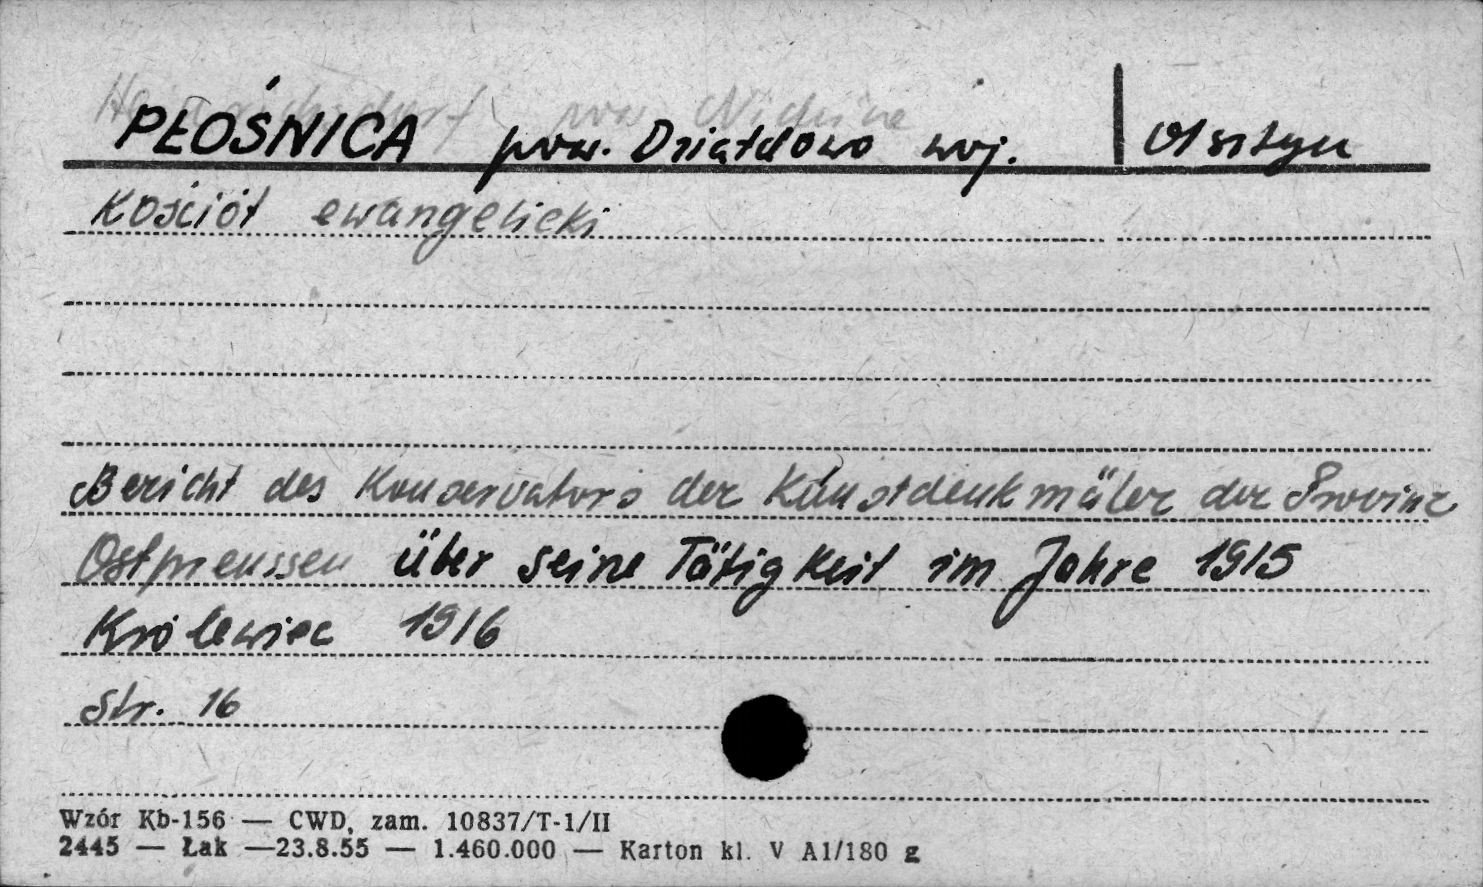 Heinrichsdorf pow. Nidzica
PŁOŚNICA pow. Działdowo woj. Olsztyn
Kościół ewangelicki
Bericht des Konservators der Kunstdenkmäler der Provinz
Ostpreussen über seine Tätigkeit im Jahre 1915
Królewiec 1916
Str. 16
Wzór Kb-156 — CWD, zam. 10837/T-1/II
2445 — Łak —23.8.55 — 1.460.000 — Karton kl. V A1/180 g